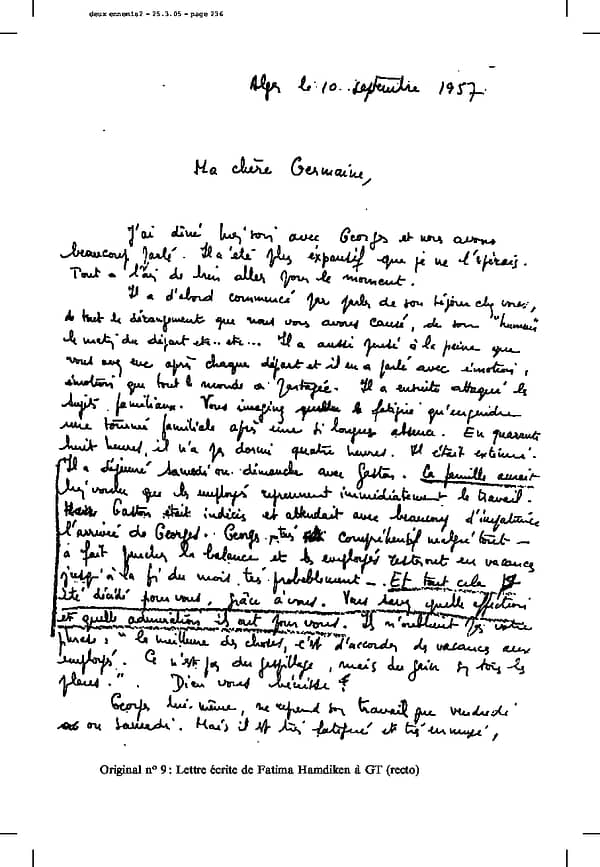 deux ennemis2 - 25.3.05 - page 236
Alger le 10 septembre 1957.
Ma chère Germaine,
J'ai dîné hier soir avec Georges et nous avons
beaucoup parlé. Il a été plus expansif que je ne l'espérais.
Tout a l'air de bien aller pour le moment.
Il a d'abord commencé par parler de son séjour chez vous,
de tout le dérangement que nous vous avons causé, de son "humeur"
le matin du départ etc.. etc... Il a aussi pensé à la peine que
vous avez eue après chaque départ et il en a parlé avec émotion,
émotion que tout le monde a partagée. Il a ensuite attaqué les
sujets familiaux. Vous imaginez quelle fatigue qu'engendre
une tournée familiale après une si longue absence. En quarante
huit heures, il n'a pas dormi quatre heures. Il était exténué.
Il a déjeuné samedi ou dimanche avec Gaston. La famille aurait
bien voulu que les employés reprennent immédiatement le travail -
Gaston était indécis et attendait avec beaucoup d'impatience
l'arrivée de Georges. Georges, très compréhensif malgré tout -
a fait pencher la balance et les employés resteront en vacances
jusqu'à la fin du mois, très probablement -. Et tout cela
été décidé pour vous, grâce à vous. Vous savez quelle affection
et quelle admiration ils ont pour vous. Ils n'oublient pas votre
phrase : "la meilleure des choses, c'est d'accorder des vacances aux
employés. Ce n'est pas du gaspillage, mais du gain sur tous les
plans." . Dieu vous bénisse !
Georges lui-même, ne reprend son travail que vendredi
ou samedi. Mais il est très fatigué et très ennuyé,
Original nº 9 : Lettre écrite de Fatima Hamdiken à GT (recto)